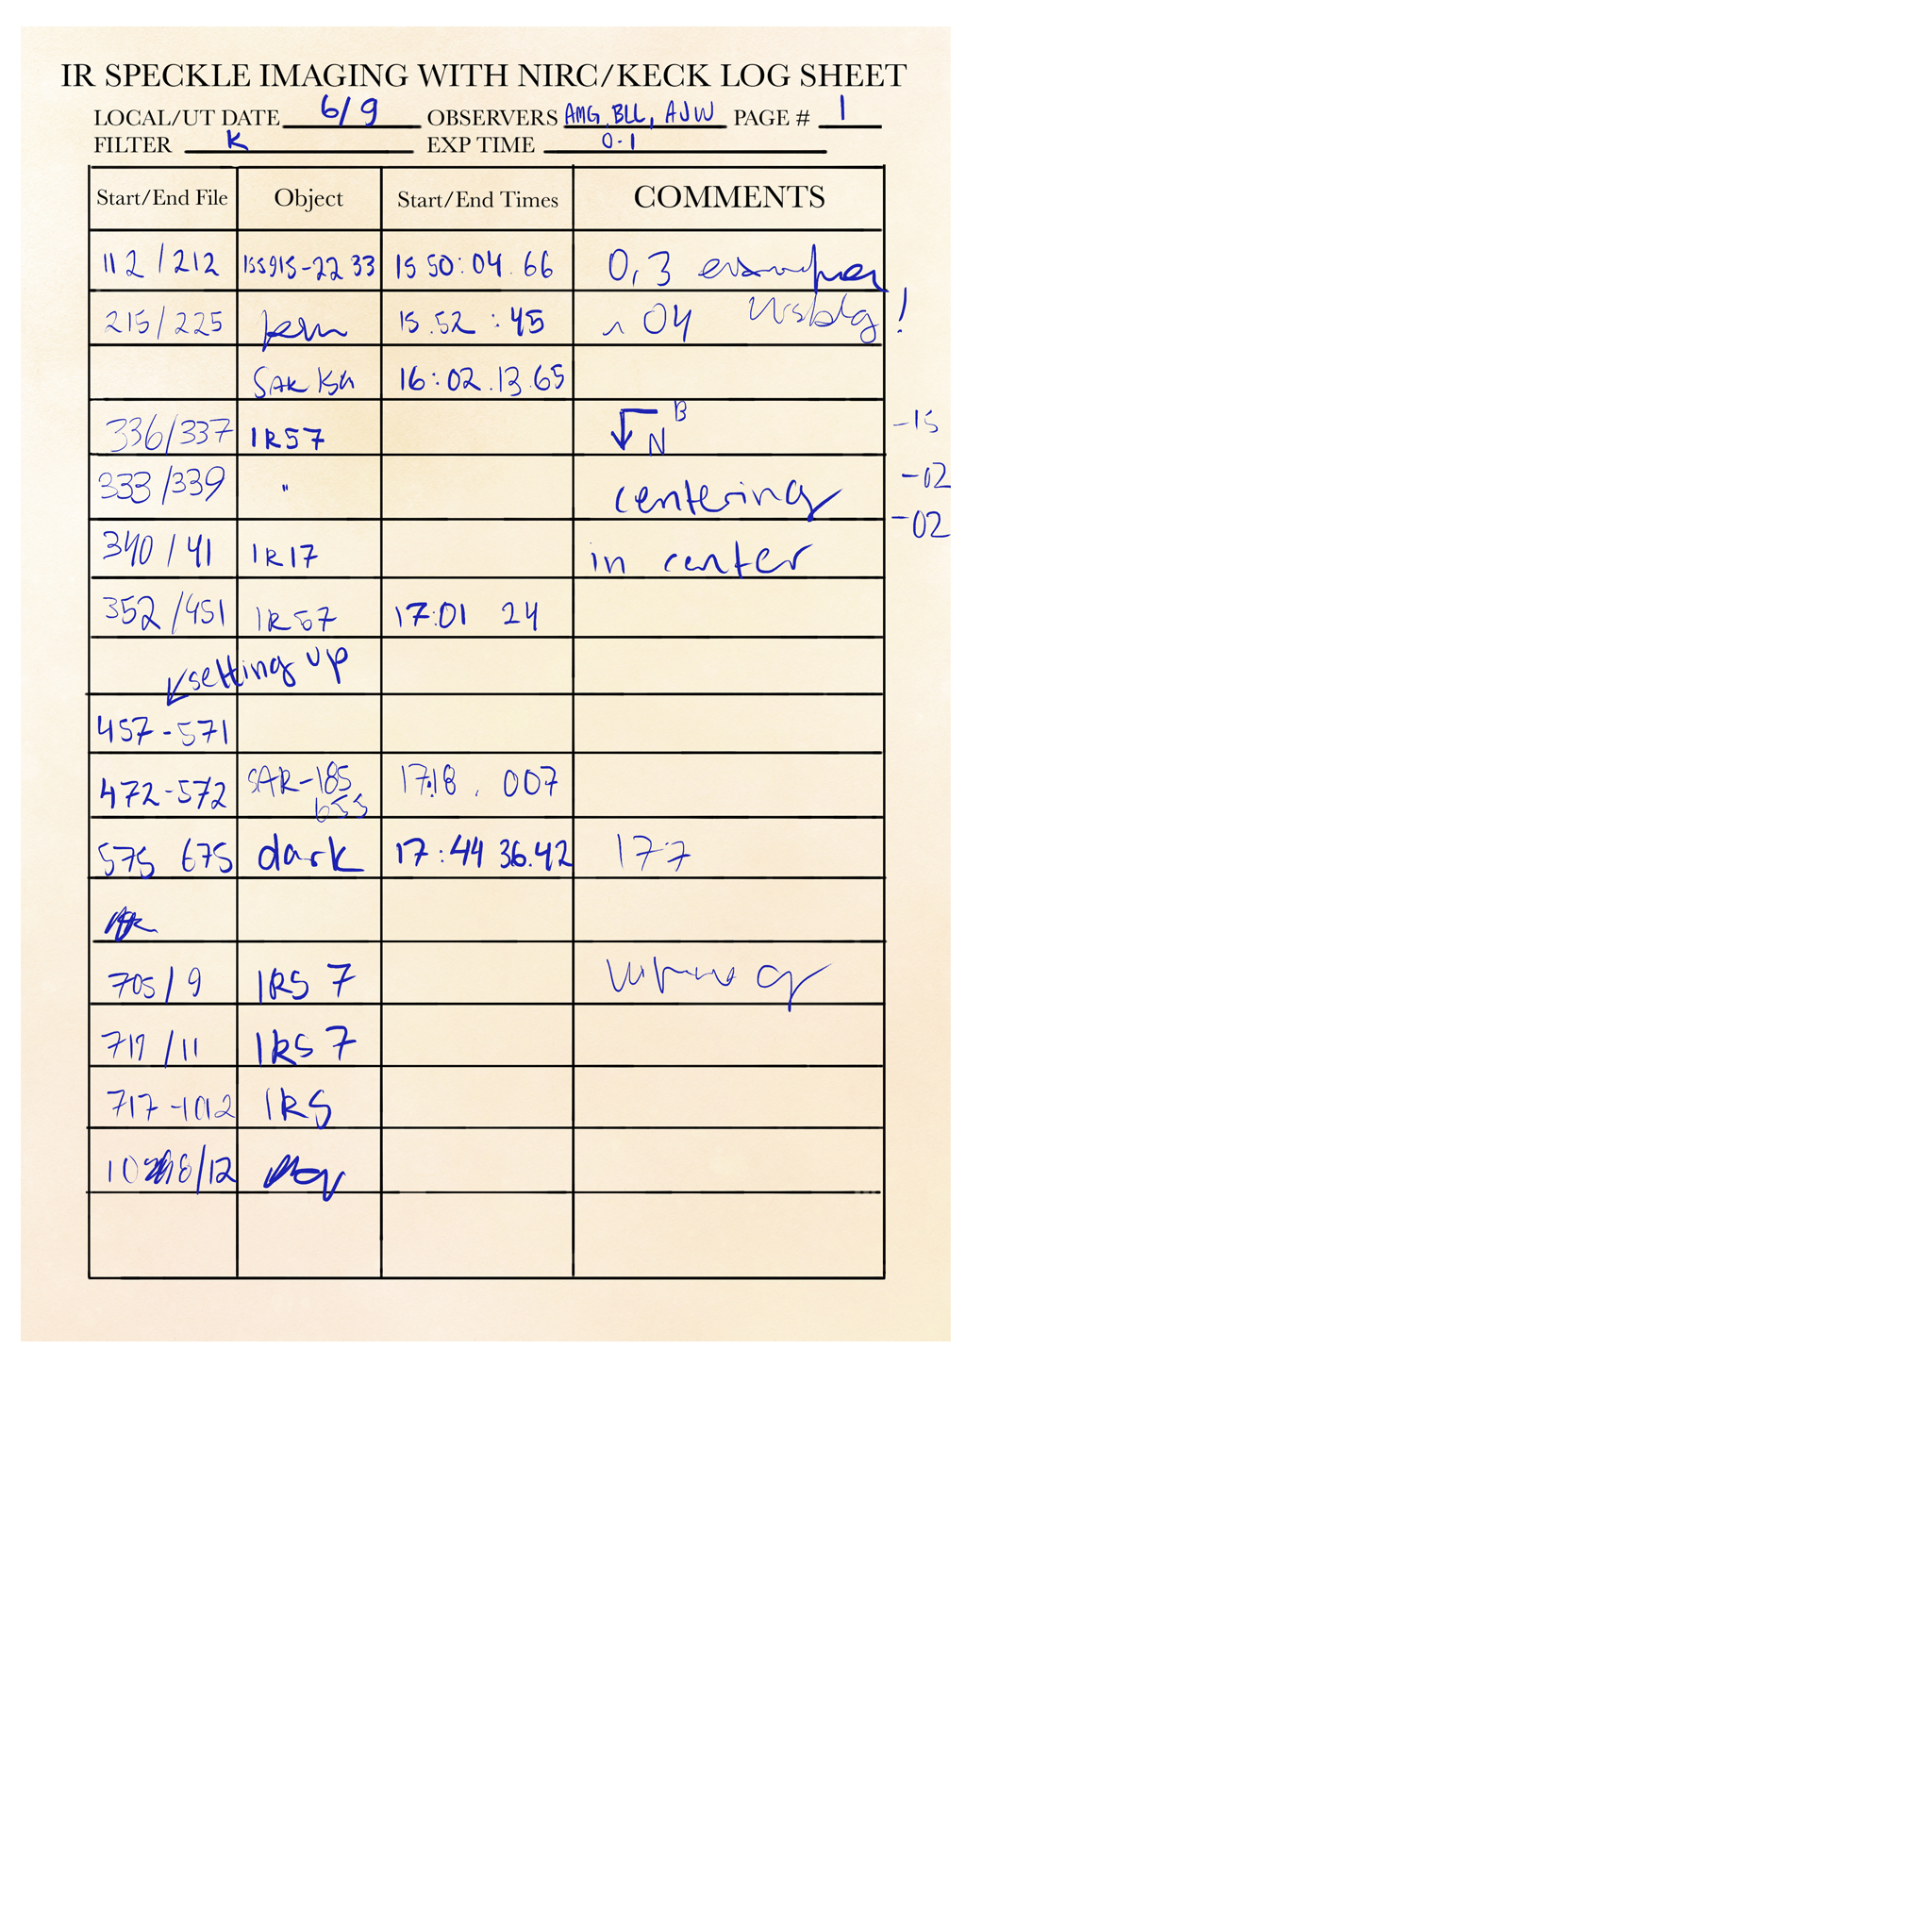 IR SPECKLE IMAGING WITH NIRC/KECK LOG SHEET
LOCAL/UT DATE 6/9 OBSERVERS AMG, BLL, AJW PAGE # 1
FILTER K EXP TIME 0.1
Start/End File Object Start/End Times COMMENTS
112/212 155915-2233 15 50:04.66 0,3
215/225 15.52:45 04 !
16:02.13.65
336/337 IR57 N B -15
333/339 " centering -02
340/41 IR17 in center -02
352/451 IR57 17:01 24
setting up
457-571
472-572 SAR-185 17:18. 007
575 675 dark 17:44 36.42 17:7
705/9 IRS 7
/11 IRS 7
717-1012 IRS
/12